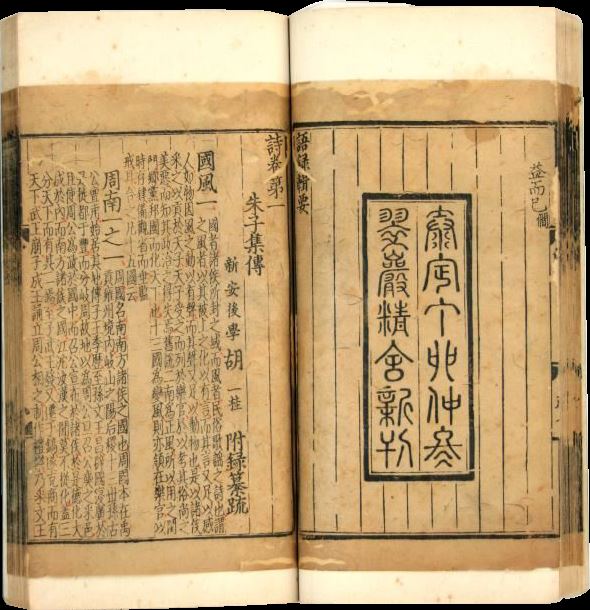 蓋而已僩
泰定丁卯仲冬
翠巖精舍新刊
語錄輯要
詩卷第
朱子集傳
新安後學胡一桂附録纂疏
國風一
國者諸侯所封之域而風者民俗歌謡之詩也謂
之風者以其被上之化以有言而其言又足以感
人如物因風之動以有聲而其聲又足以動物也是以諸侯
采之以貢於天子天子受之而列於樂官於以考其俗尚之
美惡而知其政治之得失焉舊説二南為正風所以用之閨
門鄉黨邦國而化天下也十三國為變風則亦領在樂官以
時存肄備觀省而垂監
戒耳合之凡十五國云
周南一之一
周國名南南方諸侯之國也周國本在禹
貢雍州境内岐山之陽后稷十三世孫古
公亶甫始居其地傳子王季歷至孫文王昌辟國寖廣於
是徙都于豐而分岐周故地以為周公旦召公奭之采邑
且使周公為政於國中而召公宣布於諸侯於是德化大
成於内而南方諸侯之國江沱汝漢之間莫不從化蓋三
分天下而有其二焉至子武王發又遷于鎬遂克商而有
天下武王崩子成王誦立周公相之制作禮樂乃采文王